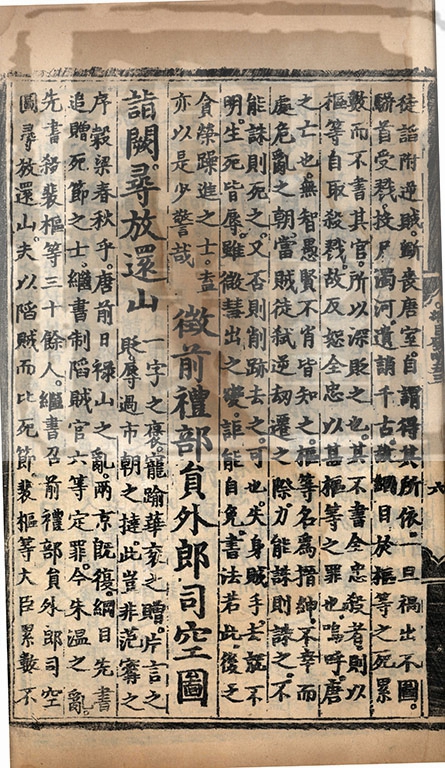 徒諂附逆賊。斷喪唐室。自謂得其所依。一旦禍出不圖。
駢首受戮。投尸濁河。遺誚千古。綱目於樞等之死。累
數而不書其官。所以深貶之也。其不書全忠殺者。則以
樞等自取殺戮。故反恕全忠。以甚樞等之罪也。嗚呼。唐
之亡也。無智愚賢不肖皆知之。樞等名爲搢紳。不幸而
處危亂之朝。當賊徒弑逆刼遷之際。力能誅則誅之。不
能誅則死之。又否則削跡去之。可也。失身賊手。去就不
明。生死皆辱。雖微彗出之變。詎能自免。書法若此。後之
貪榮躁進之士。盍
亦以是少警哉
徵前禮部員外郎司空圖
詣闕尋放還山
一字之褒。寵踰華衮之贈。片言之
貶。辱過市朝之撻。此豈非范甯之
序穀梁春秋乎。唐前日祿山之亂。兩京旣復。綱目先書
追贈死節之士。繼書制陷賊官六等定罪。今朱溫之亂
先書殺裴樞等三十餘人。繼書召前禮部員外郎司空
圖尋放還山。夫以陷賊而比死節。裴樞等大臣累數不
六